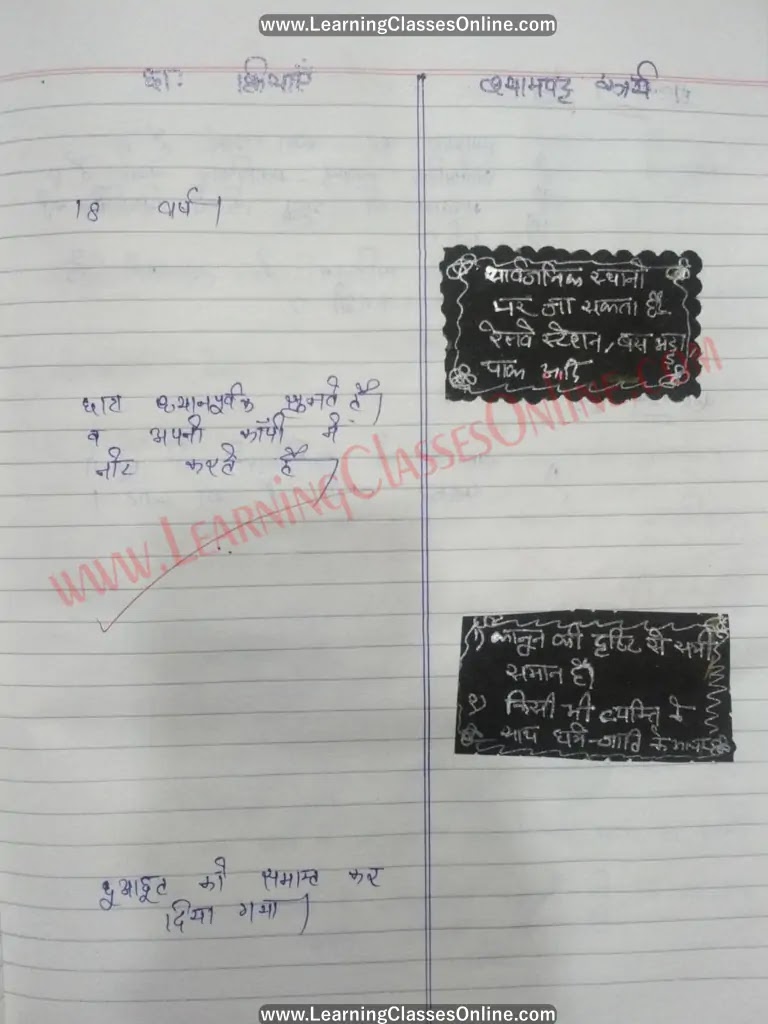 www.LearningClassesOnline.com
छा: क्रियाएँ
श्यामपट्ट कार्य
18 वर्ष।
सार्वजनिक स्थानों
पर जा सकता है।
रेलवे स्टेशन, बस अड्डा,
पार्क आदि
छात्र ध्यानपूर्वक सुनते हैं।
व अपनी कॉपी में
नोट करते हैं।
www.LearningClassesOnline.com
1) कानून की दृष्टि से सभी
समान हैं।
२) किसी भी व्यक्ति के
साथ धर्म-जाति के
छुआछूत को समाप्त कर
दिया गया।
www.LearningClassesOnline.com